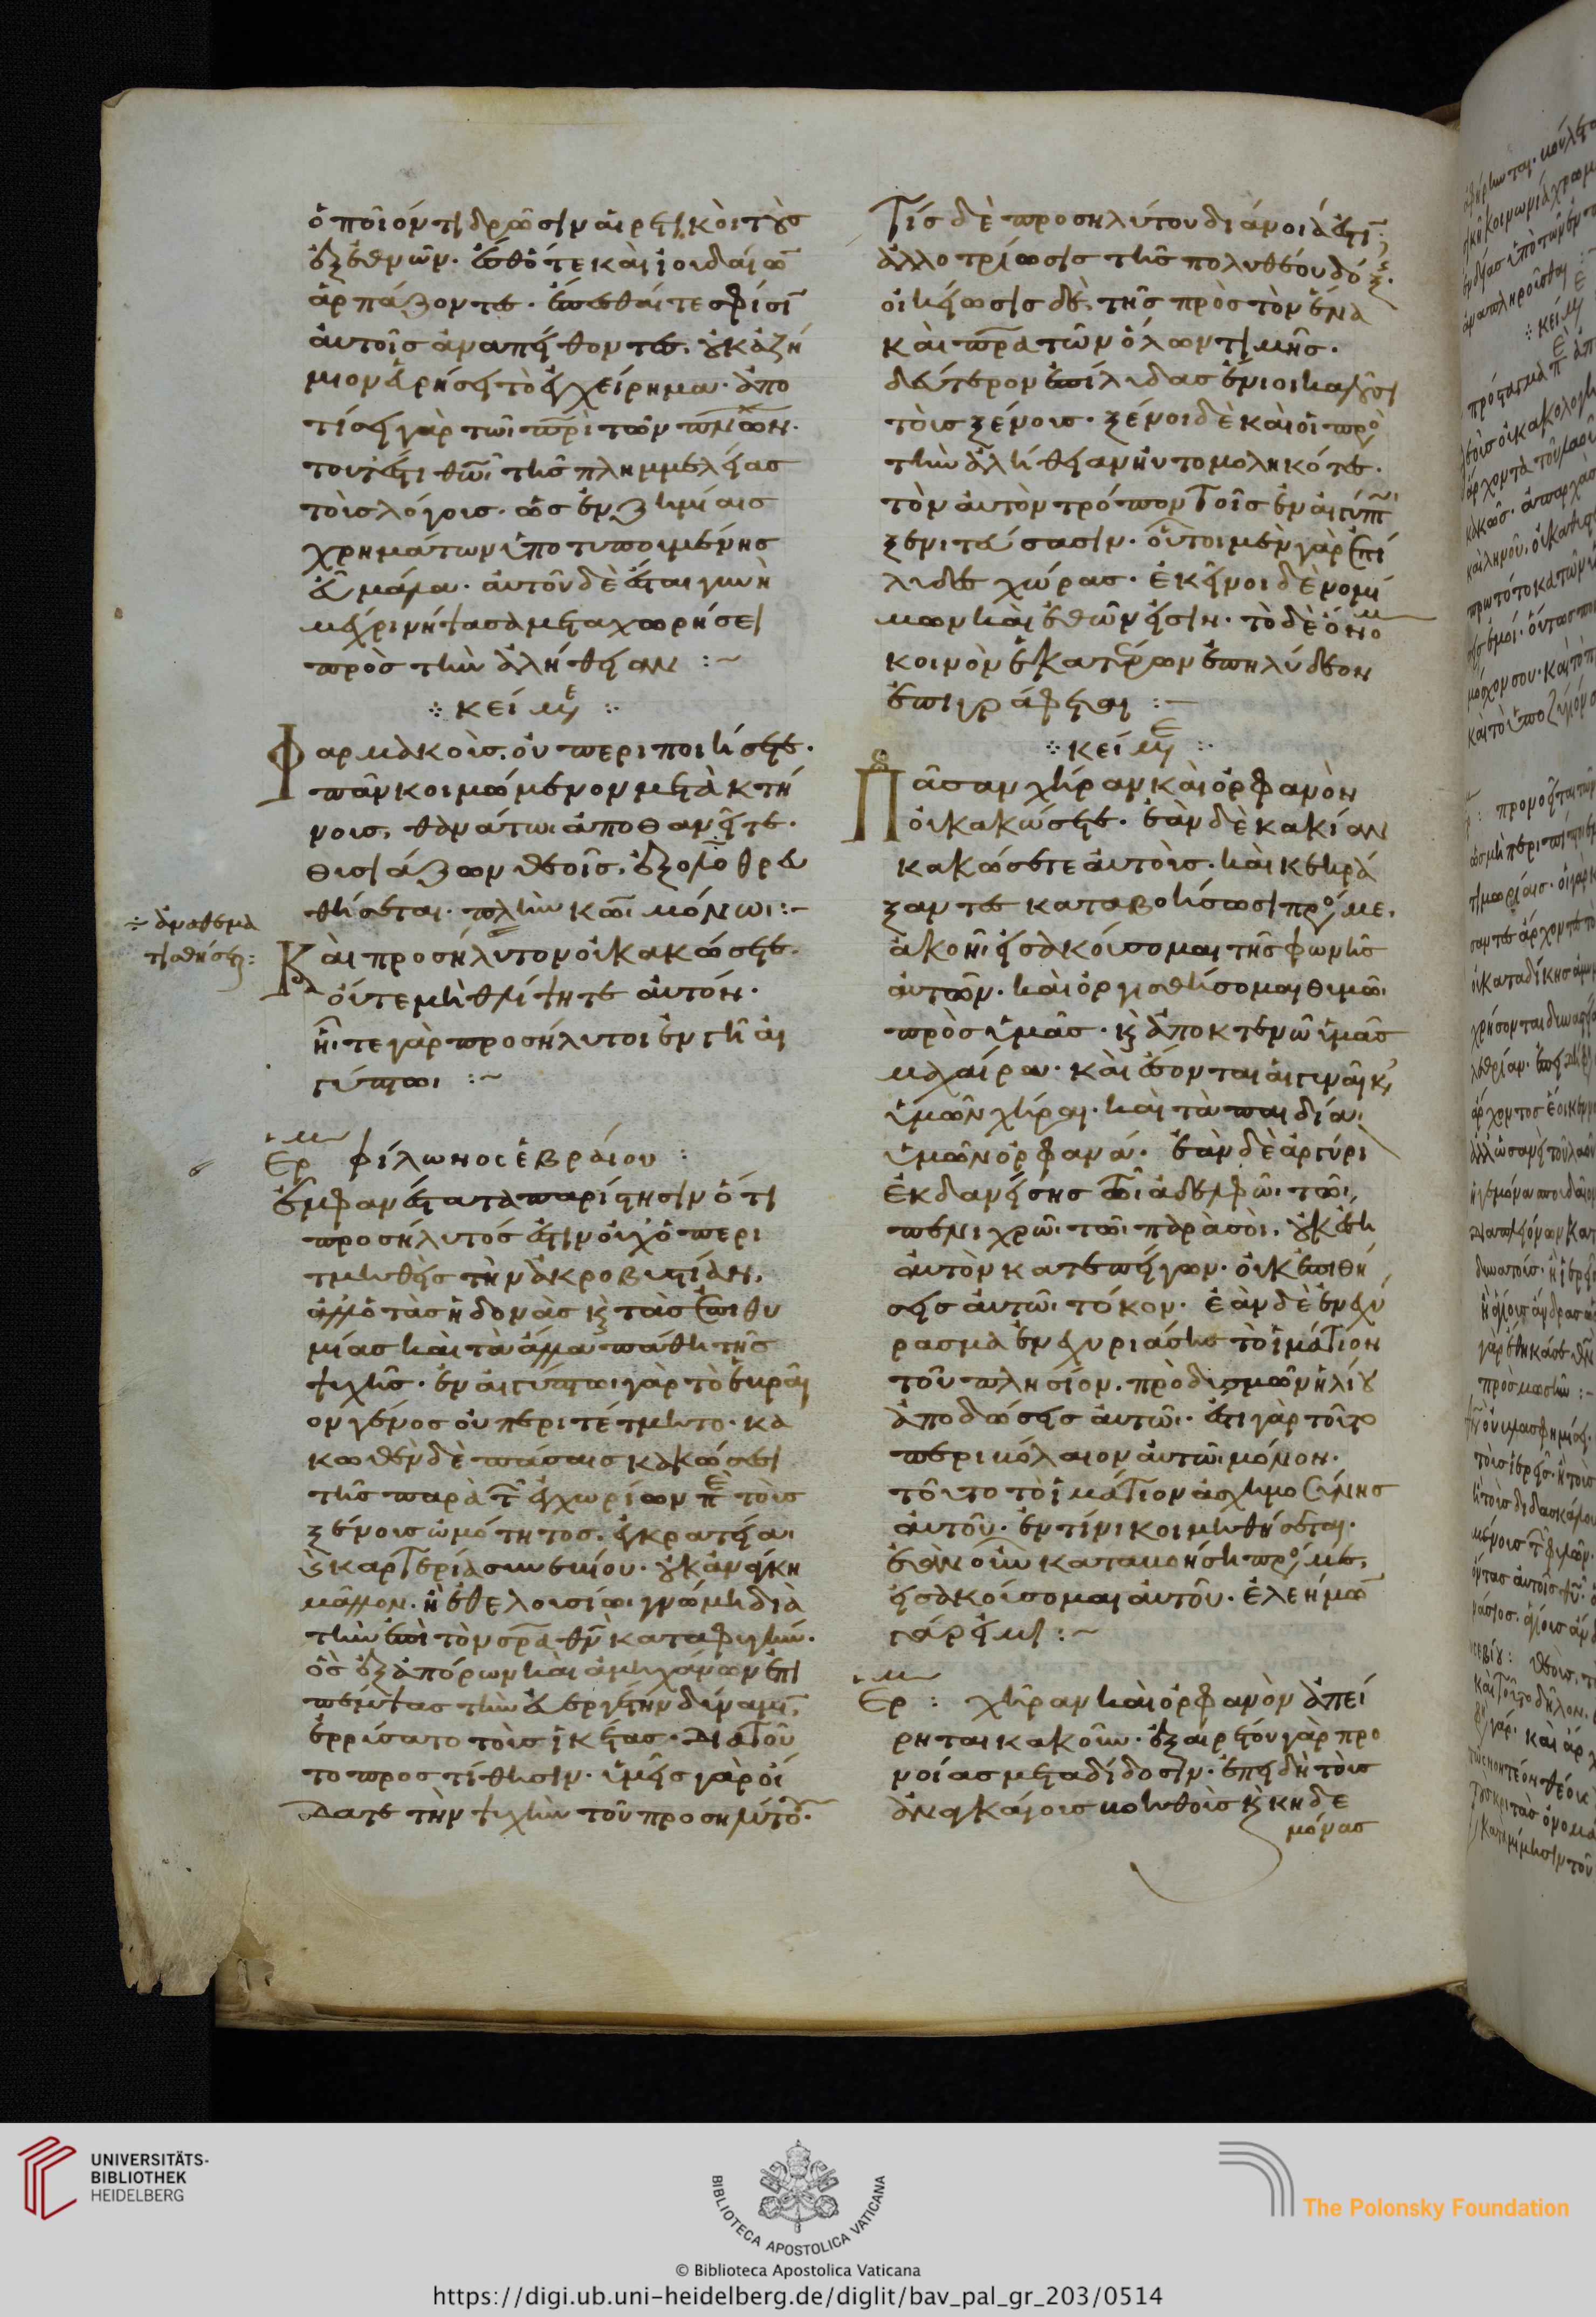 ὁποῖόν τι δρῶσιν αἱρετικοὶ τοὺς
ἐξ ἐθνῶν. ἔσθότε καὶ ἰουδαίων
ἁρπάζοντες. ἕπεσθαί τε σφίσιν
αὐτοῖς ἀναπείθοντες. οὐκ ἀζή
μιον εὑρήσει τὸ ἐγχείρημα. ἀπο
τίσει γὰρ τῶι πρὶ τῶν πνων.
τουτέστι θῶι τῆς πλημμελείας
τοὺς λόγους. ὡς ἐν ζημίαις
χρημάτων ὑποτυπουμένης
εὖ μάλα. αὐτοῦ δὲ ἔσται γυνὴ
μέχρι νήψασα μεταχωρήσει
πρὸς τὴν ἀλήθειαν :~
κείμε
Φαρμακοὺς οὐ περιποιήσετε.
πᾶν κοιμώμενον μετὰ κτή
νους, θανάτωι ἀποθανεῖτε.
θυσιάζων θεοῖς, ἐξολοθρευ
θήσεται. πλὴν κῶι μόνωι :-
÷ ἀναθεμα
τισθήσετ :
Καὶ προσήλυτον οὐ κακώσετε.
οὔτε μὴ θλίψητε αὐτόν.
ἦτε γὰρ προσήλυτοι ἐν γῆ αἰ
γύπτωι :~
Ερμ φίλωνος ἑβραίου :
Ἐμφανέστατα παρίστησιν ὅτι
προσήλυτός ἐστιν οὐχ ὁ περι
τμηθεὶς τὴν ἀκροβυστίαν,
ἀλλ' ὁ τὰς ἡδονὰς κ τὰς ἐπιθυ
μίας καὶ τὰ ἄλλα πάθη τῆς
ψυχῆς. ἐν αἰγύπτωι γὰρ τὸ ἑβραῖ
ον γένος οὐ περιτέτμητο. κα
κωθὲν δὲ πάσαις κακώσεσι
τῆς παρὰ τῶν ἐγχωρίων πε τοὺς
ξένους ὠμότητος. ἐγκρατείαι
κ καρτερία συνεβίου. οὐκ ἀνάγκη
μᾶλλον. ἢ ἐθελουσίωι γνώμη διὰ
τὴν ἐπὶ τὸν σρα θν καταφυγὴν.
ὃς ἐξ ἀπόρων καὶ ἀμηχάνων ἐπι
πέμψας τὴν εὐεργέτην δύναμιν,
ἐρρύσατο τοὺς ἱκέτας. διὰ τοῦ
το προστίθησιν. ὑμεῖς γὰρ οἴ
δατε τὴν ψυχὴν τοῦ προσηλύτου.
Τίς δὲ προσηλύτου διάνοιά ἐστιν;
ἀλλοτρίωσις τῆς πολυθέου δόξης.
οἰκείωσις δὲ, τῆς πρὸς τὸν ἕνα
καὶ πρα τῶν ὅλων τιμῆς.
δεύτερον ἐπίλυδας ἔνιοι καλοῦσι
τοὺς ξένους. ξένοι δὲ καὶ οἱ πρὸ
τὴν ἀλήθειαν ηὐτομοληκότες.
τὸν αὐτὸν τρόπον τοῖς ἐν αἰγύπτ
ξενιτεύσασιν. οὗτοι μὲν γὰρ ἐπί
λυδες χώρας. ἐκεῖνοι δὲ νομί
μων καὶ ἐθῶν εἰσίν. τὸ δὲ ὄνομ
κοινὸν ἑκατέρων ἐπηλύδων
ἐπιγράφεται :-
κείμε
Πᾶσαν χήραν καὶ ὀρφανὸν
οὐ κακώσετε. ἐὰν δὲ κακίαν
κακώσετε αὐτοὺς. καὶ κεκρά
ξαντες καταβοήσωσι πρός με.
ἀκοῆι εἰσακούσομαι τῆς φωνῆς
αὐτῶν. καὶ ὀργισθήσομαι θυμῶι
πρὸς ὑμᾶς. κ ἀποκτενῶ ὑμᾶς
μαχαίραι. καὶ ἔσονται αἱ γυναῖκ
ὑμῶν χῆραι. καὶ τὰ παιδία
ὑμῶν ὀρφανά. ἐὰν δὲ ἀργύρι
ἐκδανείσης τῶι ἀδελφῶι τῶι
πενιχρῶι τῶι παρὰ σοὶ, οὐκ ἔση
αὐτὸν κατεπείγων. οὐκ ἐπιθή
σεις αὐτῶι τόκον. ἐὰν δὲ ἐνεχύ
ρασμα ἐνεχυριάσης τὸ ἱμάτιον
τοῦ πλησίον. πρὸ δυσμῶν ἡλίου
ἀποδώσεις αὐτῶι. ἔστι γὰρ τοῦτο
περιβόλαιον αὐτῶι μόνον.
τοῦτο τὸ ἱμάτιον ἀσχημοσύνης
αὐτοῦ. ἐν τίνι κοιμηθήσεται.
ἐὰν οὖν καταβοήση πρός με,
εἰσακούσομαι αὐτοῦ. ἐλεήμων
γάρ εἰμι :~
Ερμ : χῆραν καὶ ὀρφανὸν ἀπεί
ρηται κακοῦν. ἐξαίρετον γὰρ προ
νοίας μεταδίδοσιν. ἐπειδὴ τοὺς
ἀναγκαίους βοηθοὺς κ κηδε
μόνας
UNIVERSITÄTS-
BIBLIOTHEK
HEIDELBERG
BIBLIOTECA APOSTOLICA VATICANA
The Polonsky Foundation
© Biblioteca Apostolica Vaticana
https://digi.ub.uni-heidelberg.de/diglit/bav_pal_gr_203/0514